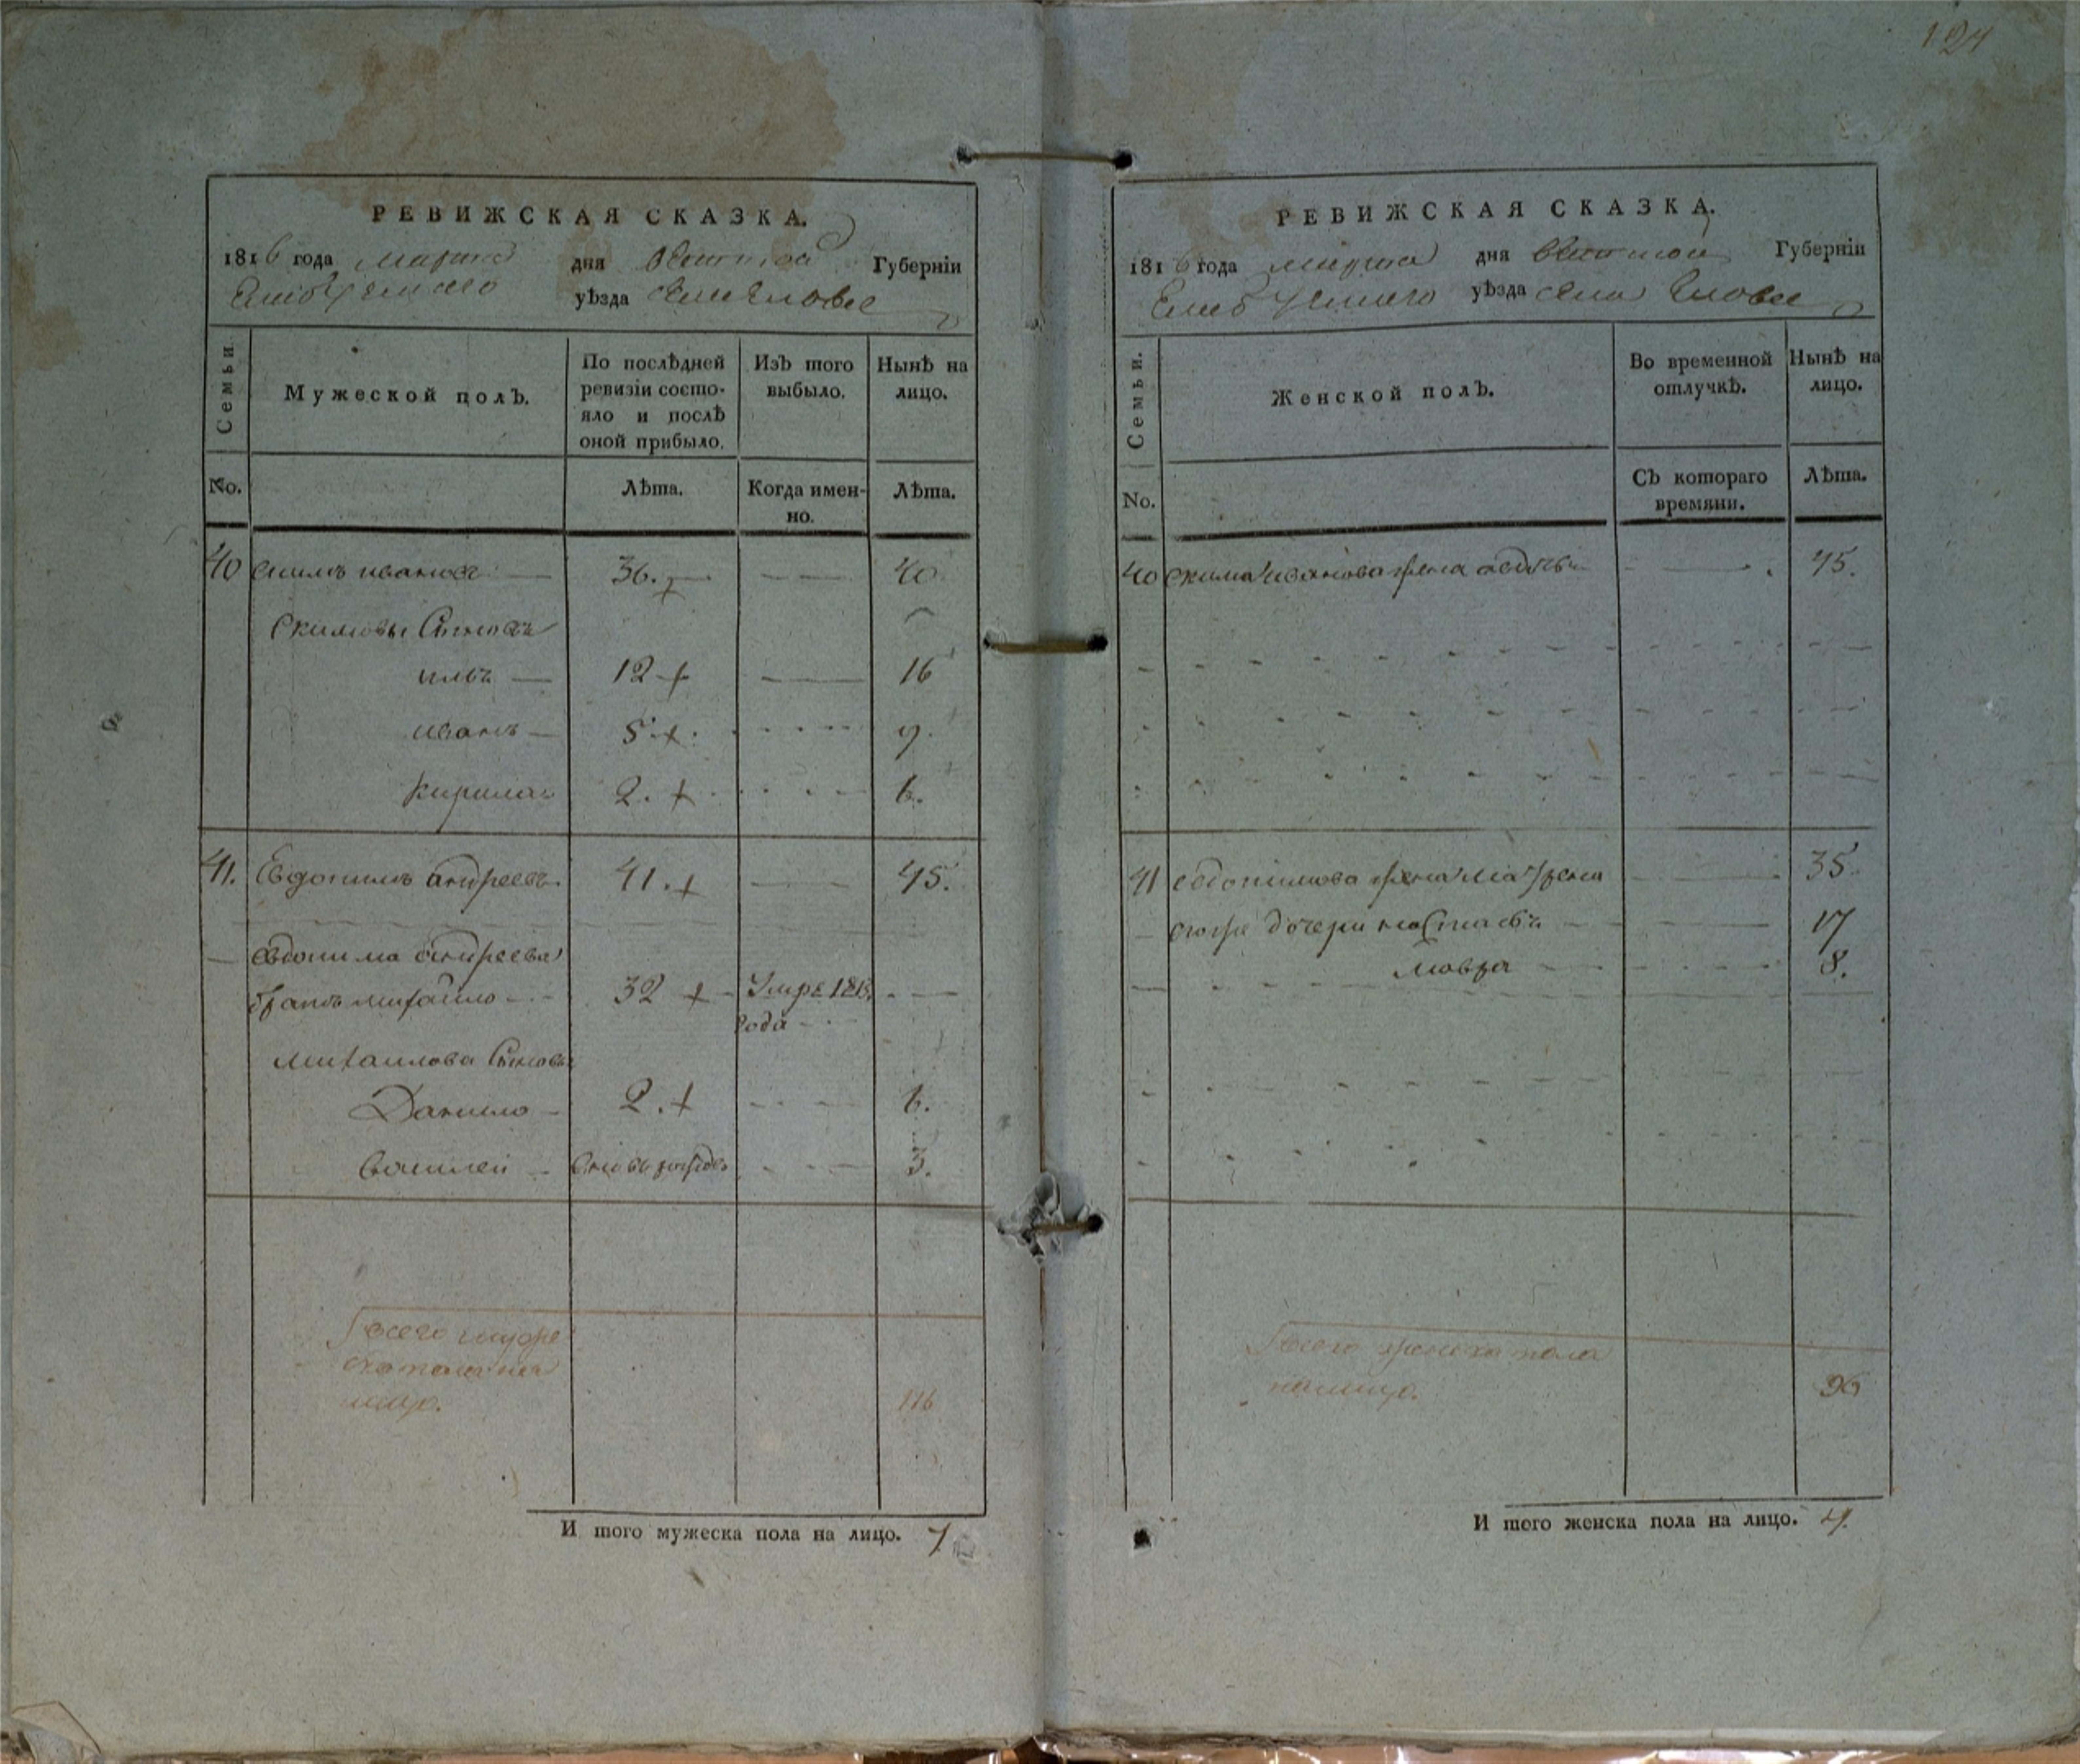 124
РЕВИЖСКАЯ СКАЗКА.
1816 года марта дня Вятской Губерніи
Елабужскаго уѣзда села Еловее
Семьи.
Мужеской полЪ.
По послѣдней ревизіи состо-
яло и послѣ
оной прибыло.
ИзЪ того
выбыло.
НынѣЪ на
лицо.
No.
Лѣта.
Когда имен-
но.
Лѣта.
40 Екимъ ивановъ 36. 40
Екимовы Сыновья
илья 12 16
иванъ 5 9.
Кирила 2. 6.
41. Евдокимъ андреевъ 41. 45.
Евдокима андреева
братъ михайло 32 Умре 1813
года
михайлова Сыновья
Данило 2. 6.
Василей вновь рожде 3.
Всего мужес
ка пола на
лицо. 116
И того мужеска пола на лицо. 7
РЕВИЖСКАЯ СКАЗКА.
1816 года марта дня Вятской Губерніи
Елабужскаго уѣзда села Еловее
Семьи.
Женской полЪ.
Во временной
отлучкѣ.
Нынѣ на
лицо.
No.
СЪ котораго
времяни.
Лѣта.
40 Екима иванова жена авдотья 45.
41 евдокимова жена матрена 35
егоже дочери настасья 17
мавра 8.
Всего женска пола
налицо. 96
И того женска пола на лицо. 4.